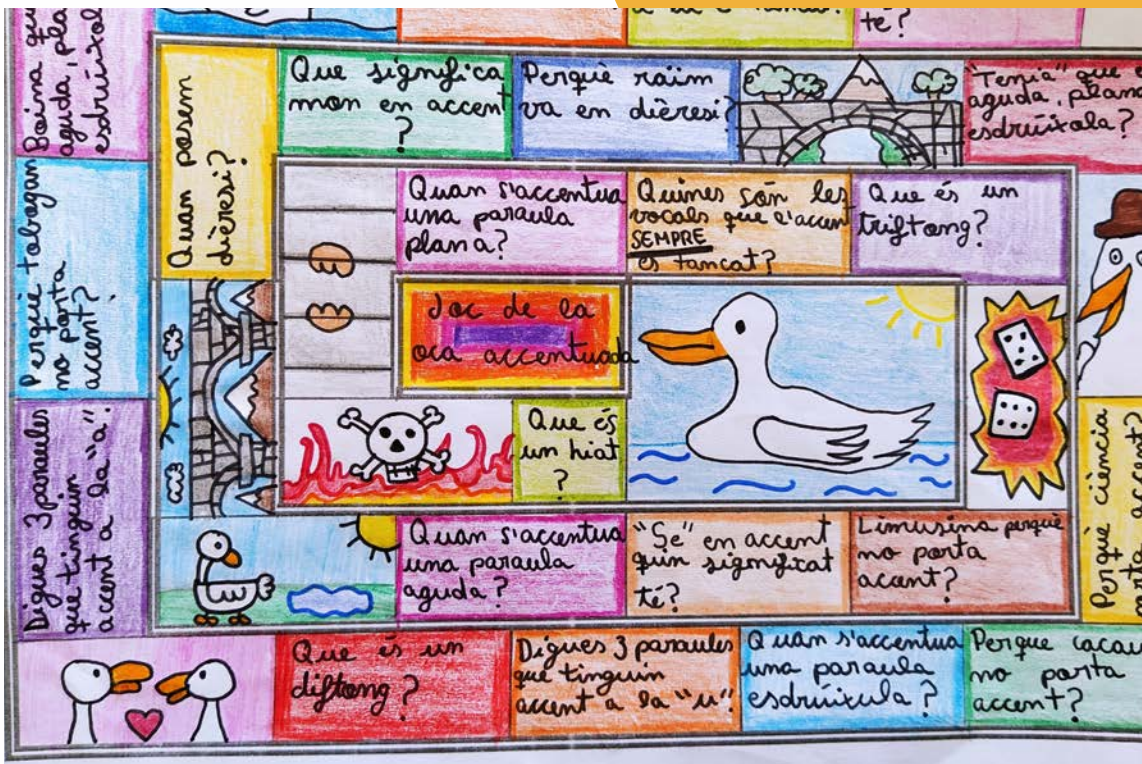 té?
Boina qu
aguda, pla
esdrúixol
Quan posem
dièresi?
Que significa
mon en accent
?
Perquè raïm
va en dièresi?
"Tenia" que é
aguda, plana
esdrúixola?
Perquè tobogan
no porta
accent?
Quan s'accentua
una paraula
plana?
Quines són les
vocals que l'accen
SEMPRE
és tancat?
Que és un
triftong?
Joc de la
oca accentuada
Que és
un hiat
?
Digues 3 paraules
que tinguin
accent a la "a".
Quan s'accentua
una paraula
aguda?
"Se" en accent
quin significat
té?
Limusina perquè
no porta
accent?
Perquè ciència
porta accent?
Que és un
diftong?
Digues 3 paraules
que tinguin
accent a la "u".
Quan s'accentua
una paraula
esdrúixula?
Perque cacau
no porta
accent?